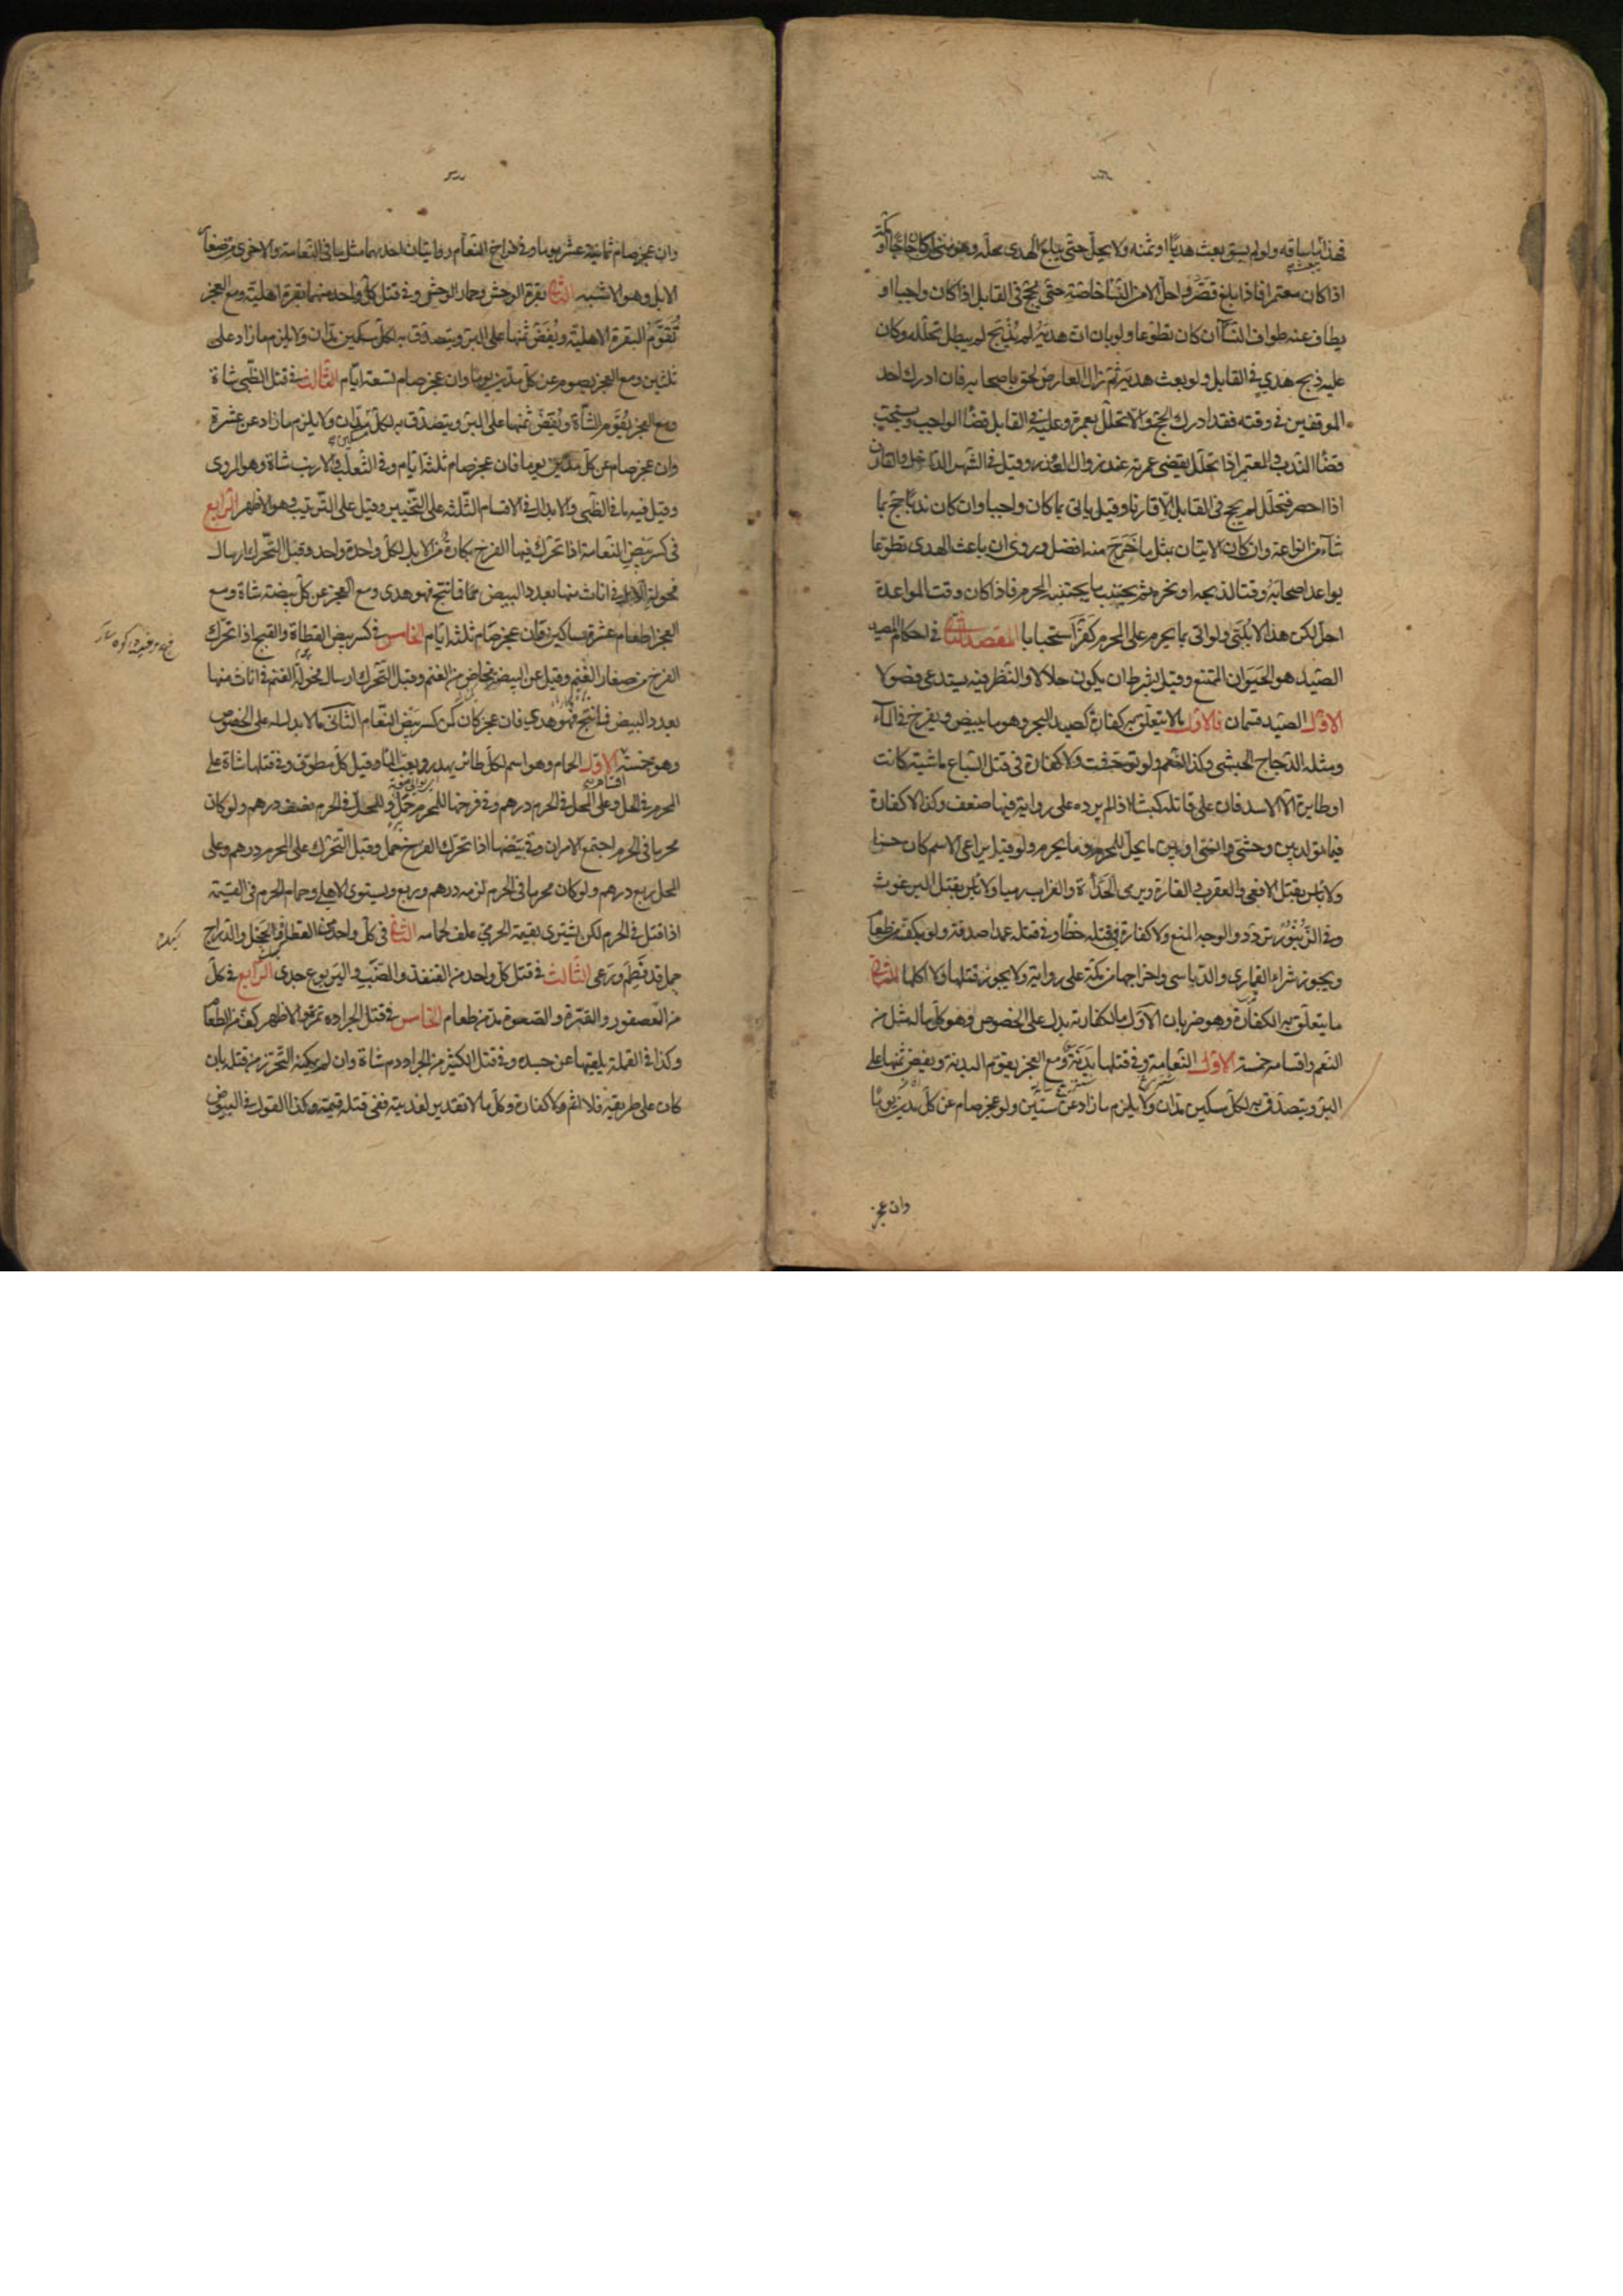 فهذا ما ساقه ولو لم يسق بعث هديا او ثمنه ولا يحل حتى يبلغ الهدى محله وهو منى ان كان حاجا او مكة
اذا كان معتمرا فاذا بلغ قصّر واحلّ الا من النسا خاصة حتى يحج فى القابل اذا كان واجبا او
يطاف عنه طواف النسآ ان كان تطوعا ولو بان ان هديه لم يُذبح لم يبطل تحلله وكان
عليه ذبح هدي فى القابل ولو بعث هديه ثم زال العارض لحق باصحابه فان ادرك احد
الموقفين فى وقته فقد ادرك الحج والا تحلل بعمرة وعليه فى القابل قضا الواجب ويستحب
قضا الندب والمعتمر اذا تحلل يقضى عمرته عند زوال العذر وقيل فى الشهر الداخل والقارن
اذا احصر فتحلل لم يحج فى القابل الا قارنا وقيل ياتى بما كان واجبا وان كان ندبا حج بما
شآء من انواعه وان كان الاتيان بمثل ما خرج منه افضل وروى ان باعث الهدى تطوعا
يواعد اصحابه وقتا لذبحه او نحره ثم يجتنب ما يجتنبه المحرم فاذا كان وقت المواعدة
احل لكن هذا لا يلبى ولو اتى بما يحرم على المحرم كفّر استحبابا المقصد الثانى فى احكام الصيد
الصيد هو الحيوان الممتنع وقيل بشرط ان يكون حلالا والنظر فيه يستدعى فصولا
الاول الصيد قسمان فالاول ما لا يتعلق به كفارة كصيد البحر وهو ما يبيض ويفرخ فى المآء
ومثله الدجاج الحبشى وكذا النعم ولو توحشت ولا كفارة فى قتل السباع ماشية كانت
او طايرة الا الاسد فان على قاتله كبشا اذا لم يرده على رواية فيها ضعف وكذا لا كفارة
فيما تولد بين وحشى وانسى او بين ما يحل للمحرم وما يحرم ولو قيل يراعى الاسم كان حسنا
ولا باس بقتل الافعى والعقرب والفارة وبرمى الحدأة والغراب رميا ولا باس بقتل البرغوث
وفى الزُّنبُور تردد والوجه المنع ولا كفارة فى قتله خطأ وفى قتله عمدا صدقة ولو بكف من طعام
ويجوز شراء القمارى والدباسى واخراجها من مكة على رواية ولا يجوز قتلها ولا اكلها الثانى
ما يتعلق به الكفارة وهو ضربان الاول ما لكفارته بدل على الخصوص وهو كل ما له مثل من
النعم واقسامه خمسة الاول النعامة وفى قتلها بدنة ومع العجز يقوم البدنة ويفض ثمنها على
البر ويتصدق به لكل مسكين مدان ولا يلزم ما زاد عن ستين ولو عجز صام عن كل مدين يوما
وان عجز
وان عجز صام ثمانية عشر يوما وفى فراخ النعام روايتان احدهما مثل ما فى النعامة والاخرى من صغار
الابل وهو الاشبه الثانى بقرة الوحش وحمار الوحش وفى قتل كل واحد منهما بقرة اهلية ومع العجز
تُقَوَّم البقرة الاهلية ويُفَضّ ثمنها على البر ويتصدق به لكل مسكين مدان ولا يلزم ما زاد على
ثلثين ومع العجز يصوم عن كل مدين يوما وان عجز صام تسعة ايام الثالث فى قتل الظبى شاة
ومع العجز يُقوّم الشاة ويُفضّ ثمنها على البر ويتصدق به لكل مسكين مدان ولا يلزم ما زاد عن عشرة
وان عجز صام عن كل مدين يوما فان عجز صام ثلثة ايام وفى الثعلب والارنب شاة وهو المروى
وقيل فيه ما فى الظبى والابدال فى الاقسام الثلثة على التخيير وقيل على الترتيب وهو الاظهر الرابع
فى كسر بيض النعامة اذا تحرك فيها الفرخ بكارة من الابل لكل واحدة واحد وقبل التحرك ارسال
فحولة الابل فى اناث منها بعدد البيض فما نتج فهو هدى ومع العجز عن كل بيضة شاة ومع
العجز اطعام عشرة مساكين فان عجز صام ثلثة ايام الخامس فى كسر بيض القطاة والقبج اذا تحرك
الفرخ من صغار الغنم وقيل عن البيضة مخاض من الغنم وقبل التحرك ارسال فحولة الغنم فى اناث منها
بعدد البيض فما نتج فهو هدي فان عجز كان كمن كسر بيض النعام الثانى ما لا بدل له على الخصوص
وهو خمسة الاول الحمام وهو اسم لكل طائر يهدر ويعب المآء وقيل كل مطوق وفى قتلها شاة على
اقسام
المحرم فى الحل وعلى المحل فى الحرم درهم وفى فرخها للمحرم حمل وللمحل فى الحرم نصف درهم ولو كان
محرما فى الحرم اجتمع الامران وفى بيضها اذا تحرك الفرخ حمل وقبل التحرك على المحرم درهم وعلى
المحل ربع درهم ولو كان محرما فى الحرم لزمه درهم وربع ويستوى الاهلى وحمام الحرم فى القيمة
اذا قتل فى الحرم لكن يشترى بقيمة الحرمى علف لحمامه الثانى فى كل واحد من القطا والحجل والدراج
حمل قد فُطِم ورعى الثالث فى قتل كل واحد من القنفذ والضب واليربوع جدى الرابع فى كل
من العصفور والقبرة والصعوة مد من طعام الخامس فى قتل الجرادة تمرة والاظهر كف من الطعام
وكذا فى القملة يلقيها عن جسده وفى قتل الكثير من الجراد دم شاة وان لم يمكنه التحرز من قتله بان
كان على طريقه فلا اثم ولا كفارة وكل ما لا تقدير لفديته ففى قتله قيمته وكذا القول فى البيوض